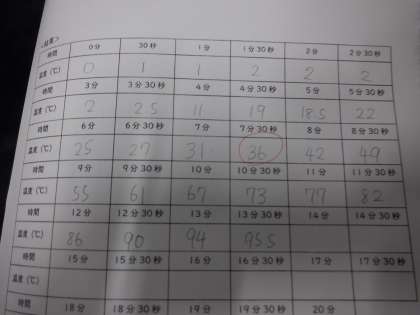 <結果>
時間 0分 30秒 1分 1分30秒 2分 2分30秒
温度(℃) 0 1 1 2 2 2
時間 3分 3分30秒 4分 4分30秒 5分 5分30秒
温度(℃) 2 2.5 11 19 18.5 22
時間 6分 6分30秒 7分 7分30秒 8分 8分30秒
温度(℃) 25 27 31 36 42 49
時間 9分 9分30秒 10分 10分30秒 11分 11分30秒
温度(℃) 55 61 67 73 77 82
時間 12分 12分30秒 13分 13分30秒 14分 14分30秒
温度(℃) 86 90 94 95.5
時間 15分 15分30秒 16分 16分30秒 17分 17分30秒
温度(℃)
時間 18分 18分30秒 19分 19分30秒 20分